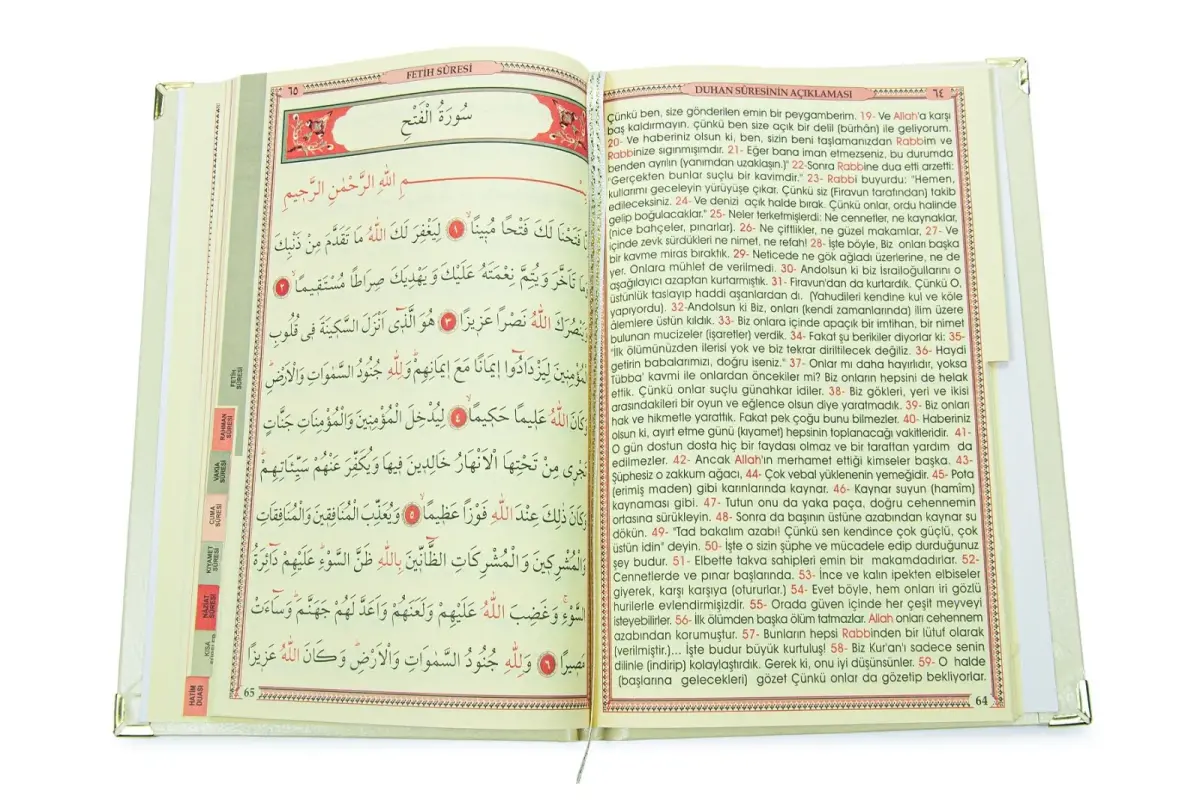 ٦٤
DUHAN SÛRESİNİN AÇIKLAMASI
Çünkü ben, size gönderilen emin bir peygamberim. 19- Ve Allah'a karşı
baş kaldırmayın. çünkü ben size açık bir delil (bürhân) ile geliyorum.
20- Ve haberiniz olsun ki, ben, sizin beni taşlamanızdan Rabbim ve
Rabbinize sığınmışımdır. 21- Eğer bana iman etmezseniz, bu durumda
benden ayrılın (yanımdan uzaklaşın.)" 22-Sonra Rabbine dua etti arzetti:
"Gerçekten bunlar suçlu bir kavimdir." 23- Rabbi buyurdu: "Hemen,
kullarımı geceleyin yürüyüşe çıkar. Çünkü siz (Firavun tarafından) takib
edileceksiniz. 24- Ve denizi açık halde bırak. Çünkü onlar, ordu halinde
gelip boğulacaklar." 25- Neler terketmişlerdi: Ne cennetler, ne kaynaklar,
(nice bahçeler, pınarlar). 26- Ne çiftlikler, ne güzel makamlar, 27- Ve
içinde zevk sürdükleri ne nimet, ne refah! 28- İşte böyle, Biz onları başka
bir kavme miras bıraktık. 29- Neticede ne gök ağladı üzerlerine, ne de
yer. Onlara mühlet de verilmedi. 30- Andolsun ki biz İsrailoğullarını o
aşağılayıcı azaptan kurtarmıştık. 31- Firavun'dan da kurtardık. Çünkü O,
üstünlük taslayıp haddi aşanlardan dı. (Yahudileri kendine kul ve köle
yapıyordu). 32-Andolsun ki Biz, onları (kendi zamanlarında) ilim üzere
âlemlere üstün kıldık. 33- Biz onlara içinde apaçık bir imtihan, bir nimet
bulunan mucizeler (işaretler) verdik. 34- Fakat şu berikiler diyorlar ki: 35-
"İlk ölümünüzden ilerisi yok ve biz tekrar diriltilecek değiliz. 36- Haydi
getirin babalarımızı, doğru iseniz." 37- Onlar mı daha hayırlıdır, yoksa
Tübba' kavmi ile onlardan öncekiler mi? Biz onların hepsini de helak
ettik. Çünkü onlar suçlu günahkar idiler. 38- Biz gökleri, yeri ve ikisi
arasındakileri bir oyun ve eğlence olsun diye yaratmadık. 39- Biz onları
hak ve hikmetle yarattık. Fakat pek çoğu bunu bilmezler. 40- Haberiniz
olsun ki, ayırt etme günü (kıyamet) hepsinin toplanacağı vakitleridir. 41-
O gün dostun dosta hiç bir faydası olmaz ve bir taraftan yardım da
edilmezler. 42- Ancak Allah'ın merhamet ettiği kimseler başka. 43-
Şüphesiz o zakkum ağacı, 44- Çok vebal yüklenenin yemeğidir. 45- Pota
(erimiş maden) gibi karınlarında kaynar. 46- Kaynar suyun (hamîm)
kaynaması gibi. 47- Tutun onu da yaka paça, doğru cehennemin
ortasına sürükleyin. 48- Sonra da başının üstüne azabından kaynar su
dökün. 49- "Tad bakalım azabı! Çünkü sen kendince çok güçlü, çok
üstün idin" deyin. 50- İşte o sizin şüphe ve mücadele edip durduğunuz
şey budur. 51- Elbette takva sahipleri emin bir makamdadırlar. 52-
Cennetlerde ve pınar başlarında. 53- İnce ve kalın ipekten elbiseler
giyerek, karşı karşıya (otururlar.) 54- Evet böyle, hem onları iri gözlü
hurilerle evlendirmişizdir. 55- Orada güven içinde her çeşit meyveyi
isteyebilirler. 56- İlk ölümden başka ölüm tatmazlar. Allah onları cehennem
azabından korumuştur. 57- Bunların hepsi Rabbinden bir lütuf olarak
(verilmiştir.)... İşte budur büyük kurtuluş! 58- Biz Kur'an'ı sadece senin
dilinle (indirip) kolaylaştırdık. Gerek ki, onu iyi düşünsünler. 59- O halde
(başlarına gelecekleri) gözet Çünkü onlar da gözetip bekliyorlar.
64
٦٥
FETİH SÛRESİ
سُورَةُ الْفَتْحِ
بِسْمِ اللهِ الرَّحْمٰنِ الرَّحِيمِ
اِنَّا فَتَحْنَا لَكَ فَتْحًا مُبِينًا ﴿١﴾ لِيَغْفِرَ لَكَ اللهُ مَا تَقَدَّمَ مِنْ ذَنْبِكَ
وَمَا تَاَخَّرَ وَيُتِمَّ نِعْمَتَهُ عَلَيْكَ وَيَهْدِيَكَ صِرَاطًا مُسْتَقِيمًا ﴿٢﴾
وَيَنْصُرَكَ اللهُ نَصْرًا عَزِيزًا ﴿٣﴾ هُوَ الَّذٖى اَنْزَلَ السَّكِينَةَ فِى قُلُوبِ
الْمُؤْمِنِينَ لِيَزْدَادُوا اِيمَانًا مَعَ اِيمَانِهِمْ وَلِلّٰهِ جُنُودُ السَّمٰوَاتِ وَالْاَرْضِ
وَكَانَ اللهُ عَلِيمًا حَكِيمًا ﴿٤﴾ لِيُدْخِلَ الْمُؤْمِنِينَ وَالْمُؤْمِنَاتِ جَنَّاتٍ
تَجْرِى مِنْ تَحْتِهَا الْاَنْهَارُ خَالِدِينَ فِيهَا وَيُكَفِّرَ عَنْهُمْ سَيِّئَاتِهِمْ
وَكَانَ ذٰلِكَ عِنْدَ اللهِ فَوْزًا عَظِيمًا ﴿٥﴾ وَيُعَذِّبَ الْمُنَافِقِينَ وَالْمُنَافِقَاتِ
وَالْمُشْرِكِينَ وَالْمُشْرِكَاتِ الظَّٓانِّينَ بِاللهِ ظَنَّ السَّوْءِ عَلَيْهِمْ دَٓائِرَةُ
السَّوْءِ وَغَضِبَ اللهُ عَلَيْهِمْ وَلَعَنَهُمْ وَاَعَدَّ لَهُمْ جَهَنَّمَ وَسَٓاءَتْ
مَصِيرًا ﴿٦﴾ وَلِلّٰهِ جُنُودُ السَّمٰوَاتِ وَالْاَرْضِ وَكَانَ اللهُ عَزِيزًا
65
FETİH
SÛRESİ
RAHMAN
SÛRESİ
VAKIA
SÛRESİ
CUMA
SÛRESİ
KIYAMET
SÛRESİ
NÂZİAT
SÛRESİ
KISA
HATİM
DUASI